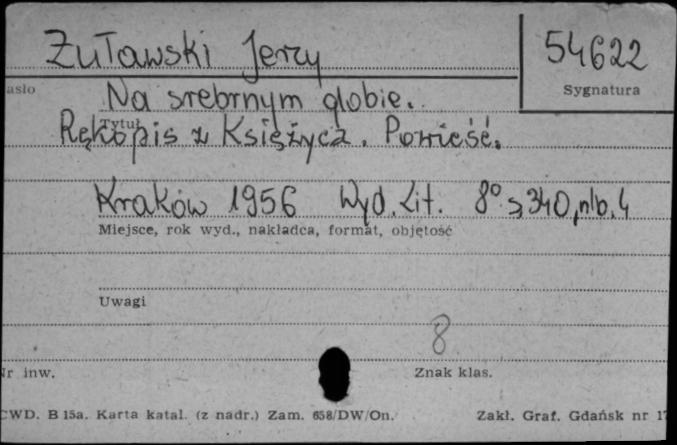 Żuławski Jerzy 54622
asło Sygnatura
Na srebrnym globie.
Tytuł
Rękopis z Księżyca. Powieść.
Kraków 1956 Wyd. Lit. 8° s 340, nlb. 4
Miejsce, rok wyd., nakładca, format, objętość
Uwagi
8
Nr inw. Znak klas.
CWD. B 15a. Karta katal. (z nadr.) Zam. 658/DW/On. Zakł. Graf. Gdańsk nr 17